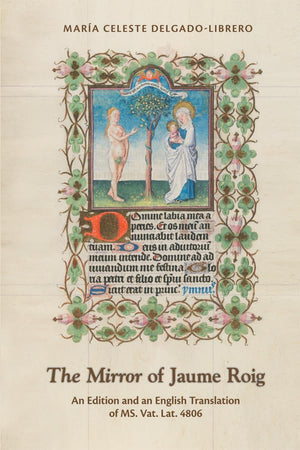 MARÍA CELESTE DELGADO-LIBRERO
Domine labia mea a
peries. Et os meum an
nunciabit laudem
tuam. Deus in adiutorium
meum intende. Domine ad ad
iuuandum me festina. Glo
ria patri et filio et spiritui sancto
Sicut erat in princ. ymnus
The Mirror of Jaume Roig
An Edition and an English Translation
of MS. Vat. Lat. 4806